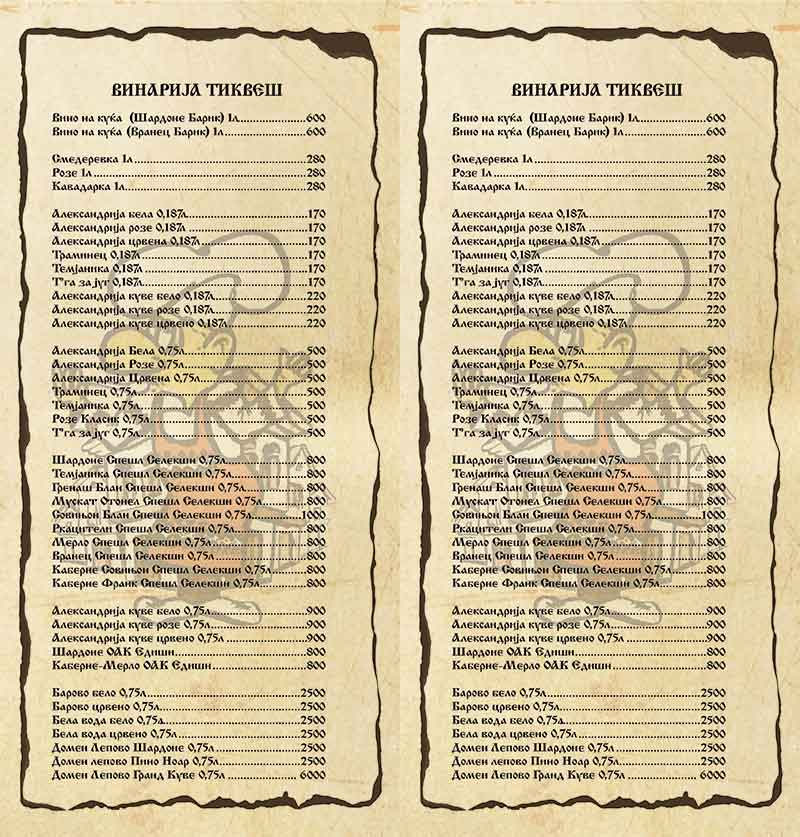 ВИНАРИЈА ТИКВЕШ
Вино на куќа (Шардоне Барик) 1л......................600
Вино на куќа (Вранец Барик) 1л...........................600
Смедеревка 1л..........................................................280
Розе 1л........................................................................280
Кавадарка 1л.............................................................280
Александрија бела 0,187л........................................170
Александрија розе 0,187л ........................................170
Александрија црвена 0,187л ....................................170
Траминец 0,187л........................................................170
Темјаника 0,187л.......................................................170
Т'га за југ 0,187л.......................................................170
Александрија куве бело 0,187л...............................220
Александрија куве розе 0,187л...............................220
Александрија куве црвено 0,187л...........................220
Александрија Бела 0,75л..........................................500
Александрија Розе 0,75л..........................................500
Александрија Црвена 0,75л.....................................500
Траминец 0,75л..........................................................500
Темјаника 0,75л.........................................................500
Розе Класик 0,75л.....................................................500
Т'га за југ 0,75л.........................................................500
Шардоне Спешл Селекшн 0,75л.............................800
Темјаника Спешл Селекшн 0,75л...........................800
Гренаш Блан Спешл Селекшн 0,75л......................800
Мускат Отонел Спешл Селекшн 0,75л..................800
Совињон Блан Спешл Селекшн 0,75л..................1000
Ркацители Спешл Селекшн 0,75л..........................800
Мерло Спешл Селекшн 0,75л.................................800
Вранец Спешл Селекшн 0,75л................................800
Каберне Совињон Спешл Селекшн 0,75л..............800
Каберне Франк Спешл Селекшн 0,75л..................800
Александрија куве бело 0,75л.................................900
Александрија куве розе 0,75л.................................900
Александрија куве црвено 0,75л ............................900
Шардоне ОАК Едишн..............................................800
Каберне-Мерло ОАК Едишн...................................800
Барово бело 0,75л....................................................2500
Барово црвено 0,75л................................................2500
Бела вода бело 0,75л...............................................2500
Бела вода црвено 0,75л...........................................2500
Домен Лепово Шардоне 0,75л................................2500
Домен лепово Пино Ноар 0,75л.............................2500
Домен Лепово Гранд Куве 0,75л ........................... 6000
ВИНАРИЈА ТИКВЕШ
Вино на куќа (Шардоне Барик) 1л......................600
Вино на куќа (Вранец Барик) 1л...........................600
Смедеревка 1л..........................................................280
Розе 1л........................................................................280
Кавадарка 1л.............................................................280
Александрија бела 0,187л........................................170
Александрија розе 0,187л ........................................170
Александрија црвена 0,187л ....................................170
Траминец 0,187л........................................................170
Темјаника 0,187л.......................................................170
Т'га за југ 0,187л.......................................................170
Александрија куве бело 0,187л...............................220
Александрија куве розе 0,187л...............................220
Александрија куве црвено 0,187л...........................220
Александрија Бела 0,75л..........................................500
Александрија Розе 0,75л..........................................500
Александрија Црвена 0,75л.....................................500
Траминец 0,75л..........................................................500
Темјаника 0,75л.........................................................500
Розе Класик 0,75л.....................................................500
Т'га за југ 0,75л.........................................................500
Шардоне Спешл Селекшн 0,75л.............................800
Темјаника Спешл Селекшн 0,75л...........................800
Гренаш Блан Спешл Селекшн 0,75л......................800
Мускат Отонел Спешл Селекшн 0,75л..................800
Совињон Блан Спешл Селекшн 0,75л..................1000
Ркацители Спешл Селекшн 0,75л..........................800
Мерло Спешл Селекшн 0,75л.................................800
Вранец Спешл Селекшн 0,75л................................800
Каберне Совињон Спешл Селекшн 0,75л..............800
Каберне Франк Спешл Селекшн 0,75л..................800
Александрија куве бело 0,75л.................................900
Александрија куве розе 0,75л.................................900
Александрија куве црвено 0,75л ............................900
Шардоне ОАК Едишн..............................................800
Каберне-Мерло ОАК Едишн...................................800
Барово бело 0,75л....................................................2500
Барово црвено 0,75л................................................2500
Бела вода бело 0,75л...............................................2500
Бела вода црвено 0,75л...........................................2500
Домен Лепово Шардоне 0,75л................................2500
Домен лепово Пино Ноар 0,75л.............................2500
Домен Лепово Гранд Куве 0,75л ........................... 6000